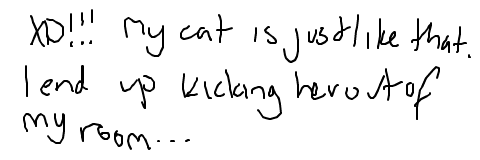 XD!!! My cat is just like that.
I end up kicking her out of
my room...